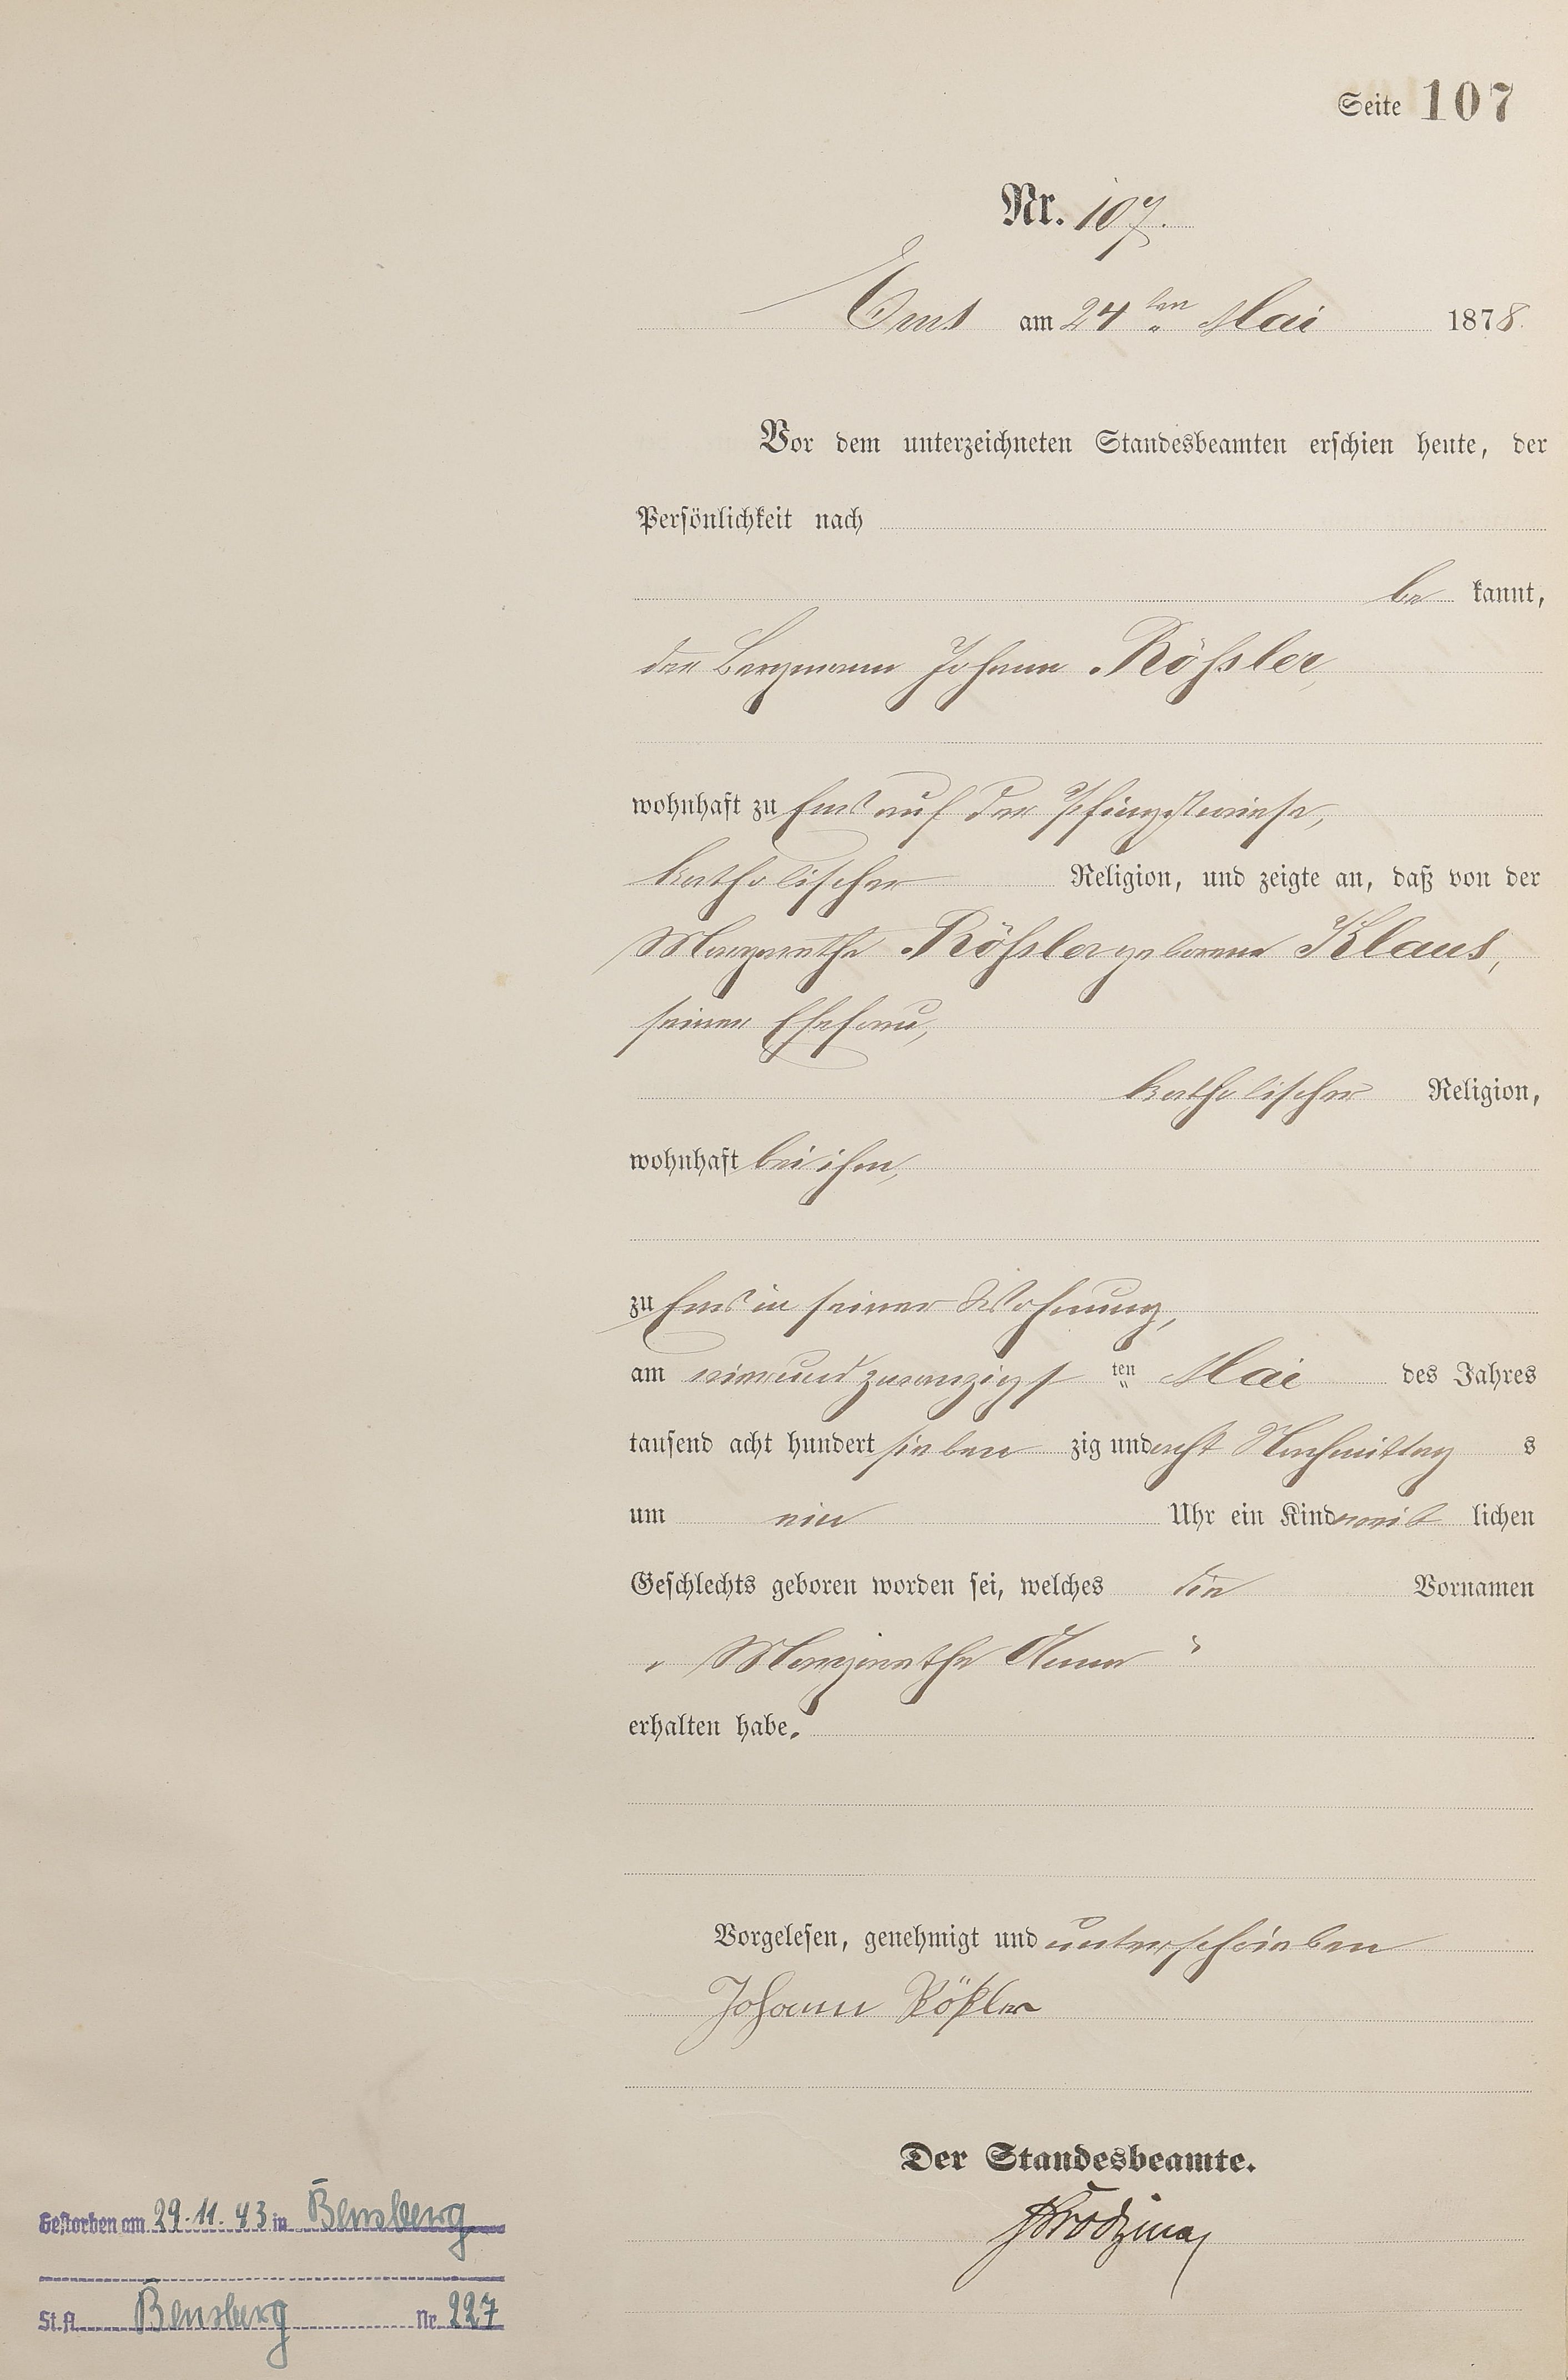 Seite 107
Nr. 107.
Ems am 24ten Mai 1878.
Vor dem unterzeichneten Standesbeamten erschien heute, der
Persönlichkeit nach
be kannt,
der Bergmann Johann Rößler,
wohnhaft zu Ems auf der Pfingstwiese,
katholischer Religion, und zeigte an, daß von der
Margarethe Rößler geborene Klaus,
seiner Ehefrau,
katholischer Religion,
wohnhaft bei ihm,
zu Ems in seiner Wohnung,
am einundzwanzigst ten Mai des Jahres
tausend acht hundert sieben zig und acht Nachmittag s
um ein Uhr ein Kind weib lichen
Geschlechts geboren worden sei, welches die Vornamen
„Margarethe Anna“
erhalten habe.
Vorgelesen, genehmigt und unterschrieben
Johann Rößler
Der Standesbeamte.
Gestorben am 29.11.43 in Bensberg
St.A. Bensberg Nr. 227